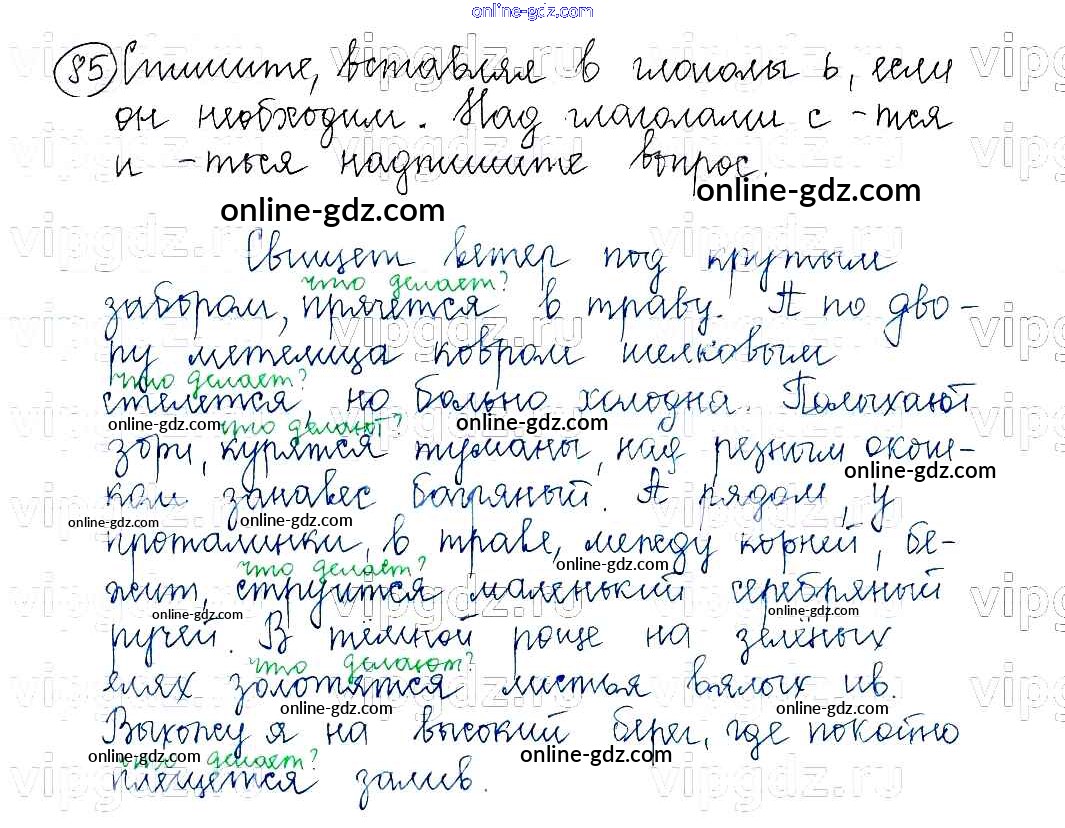 online-gdz.com
85 Спишите, вставляя в глаголы ь, если
он необходим. Над глаголами с -тся
и -ться надпишите вопрос.
online-gdz.com
online-gdz.com
Свищет ветер под крутым
что делает?
забором, прячется в траву. А по дво-
ру метелица ковром шелковым
что делает?
стелется, но больно холодна. Полыхают
online-gdz.com
что делают?
online-gdz.com
зори, курятся туманы, над резным окош-
online-gdz.com
ком занавес багряный. А рядом, у
online-gdz.com
online-gdz.com
проталинки, в траве, между корней, бе-
что делает?
online-gdz.com
жит, струится маленький серебряный
online-gdz.com
online-gdz.com
ручей. В тёмной роще на зелёных
что делают?
елях золотятся листья вялых ив.
online-gdz.com
online-gdz.com
Выхожу я на высокий берег, где покойно
online-gdz.com
что делает?
online-gdz.com
online-gdz.com
плещется залив.
vipgdz.ru